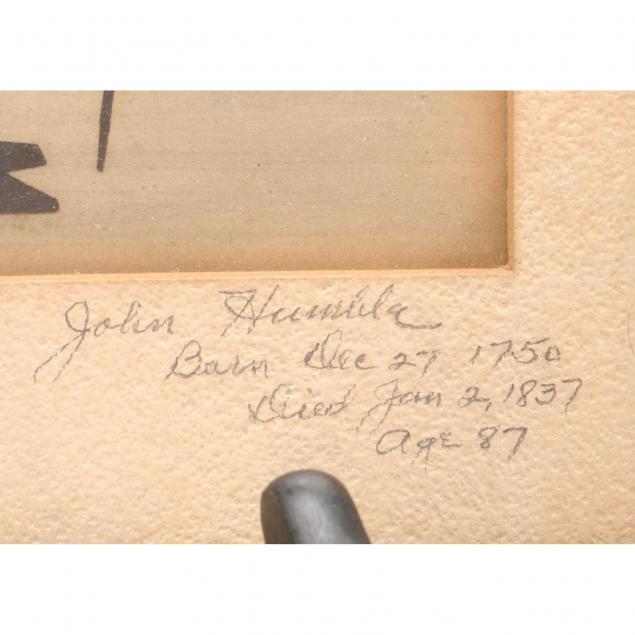 John Humble
Born Dec 27 1750
Died Jan 2, 1837
Age 87